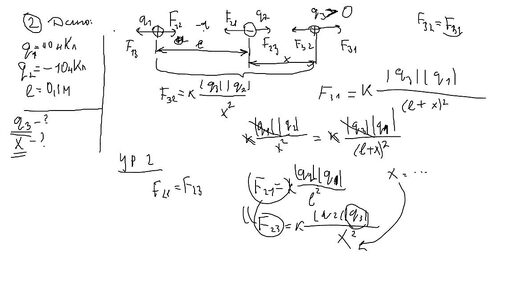 ② Дано:
q₁ = 10⁻⁴ Кл
q₂ = -10⁻⁴ Кл
l = 0,1 м
q₃ - ?
x - ?
q₁ F₃₂ F₂₁ q₂ q₃ > 0
F₁₃ l F₂₃ F₃₂ F₃₁
x
F₃₂ = F₃₁
F₃₂ = K |q₃||q₂| / x²
F₃₁ = K |q₃||q₁| / (l + x)²
K |q₃||q₂| / x² = K |q₃||q₁| / (l+x)²
УР 2
F₂₁ = F₂₃
F₂₁ = K |q₂||q₁| / l²
x = ...
F₂₃ = K |q₂||q₃| / x²